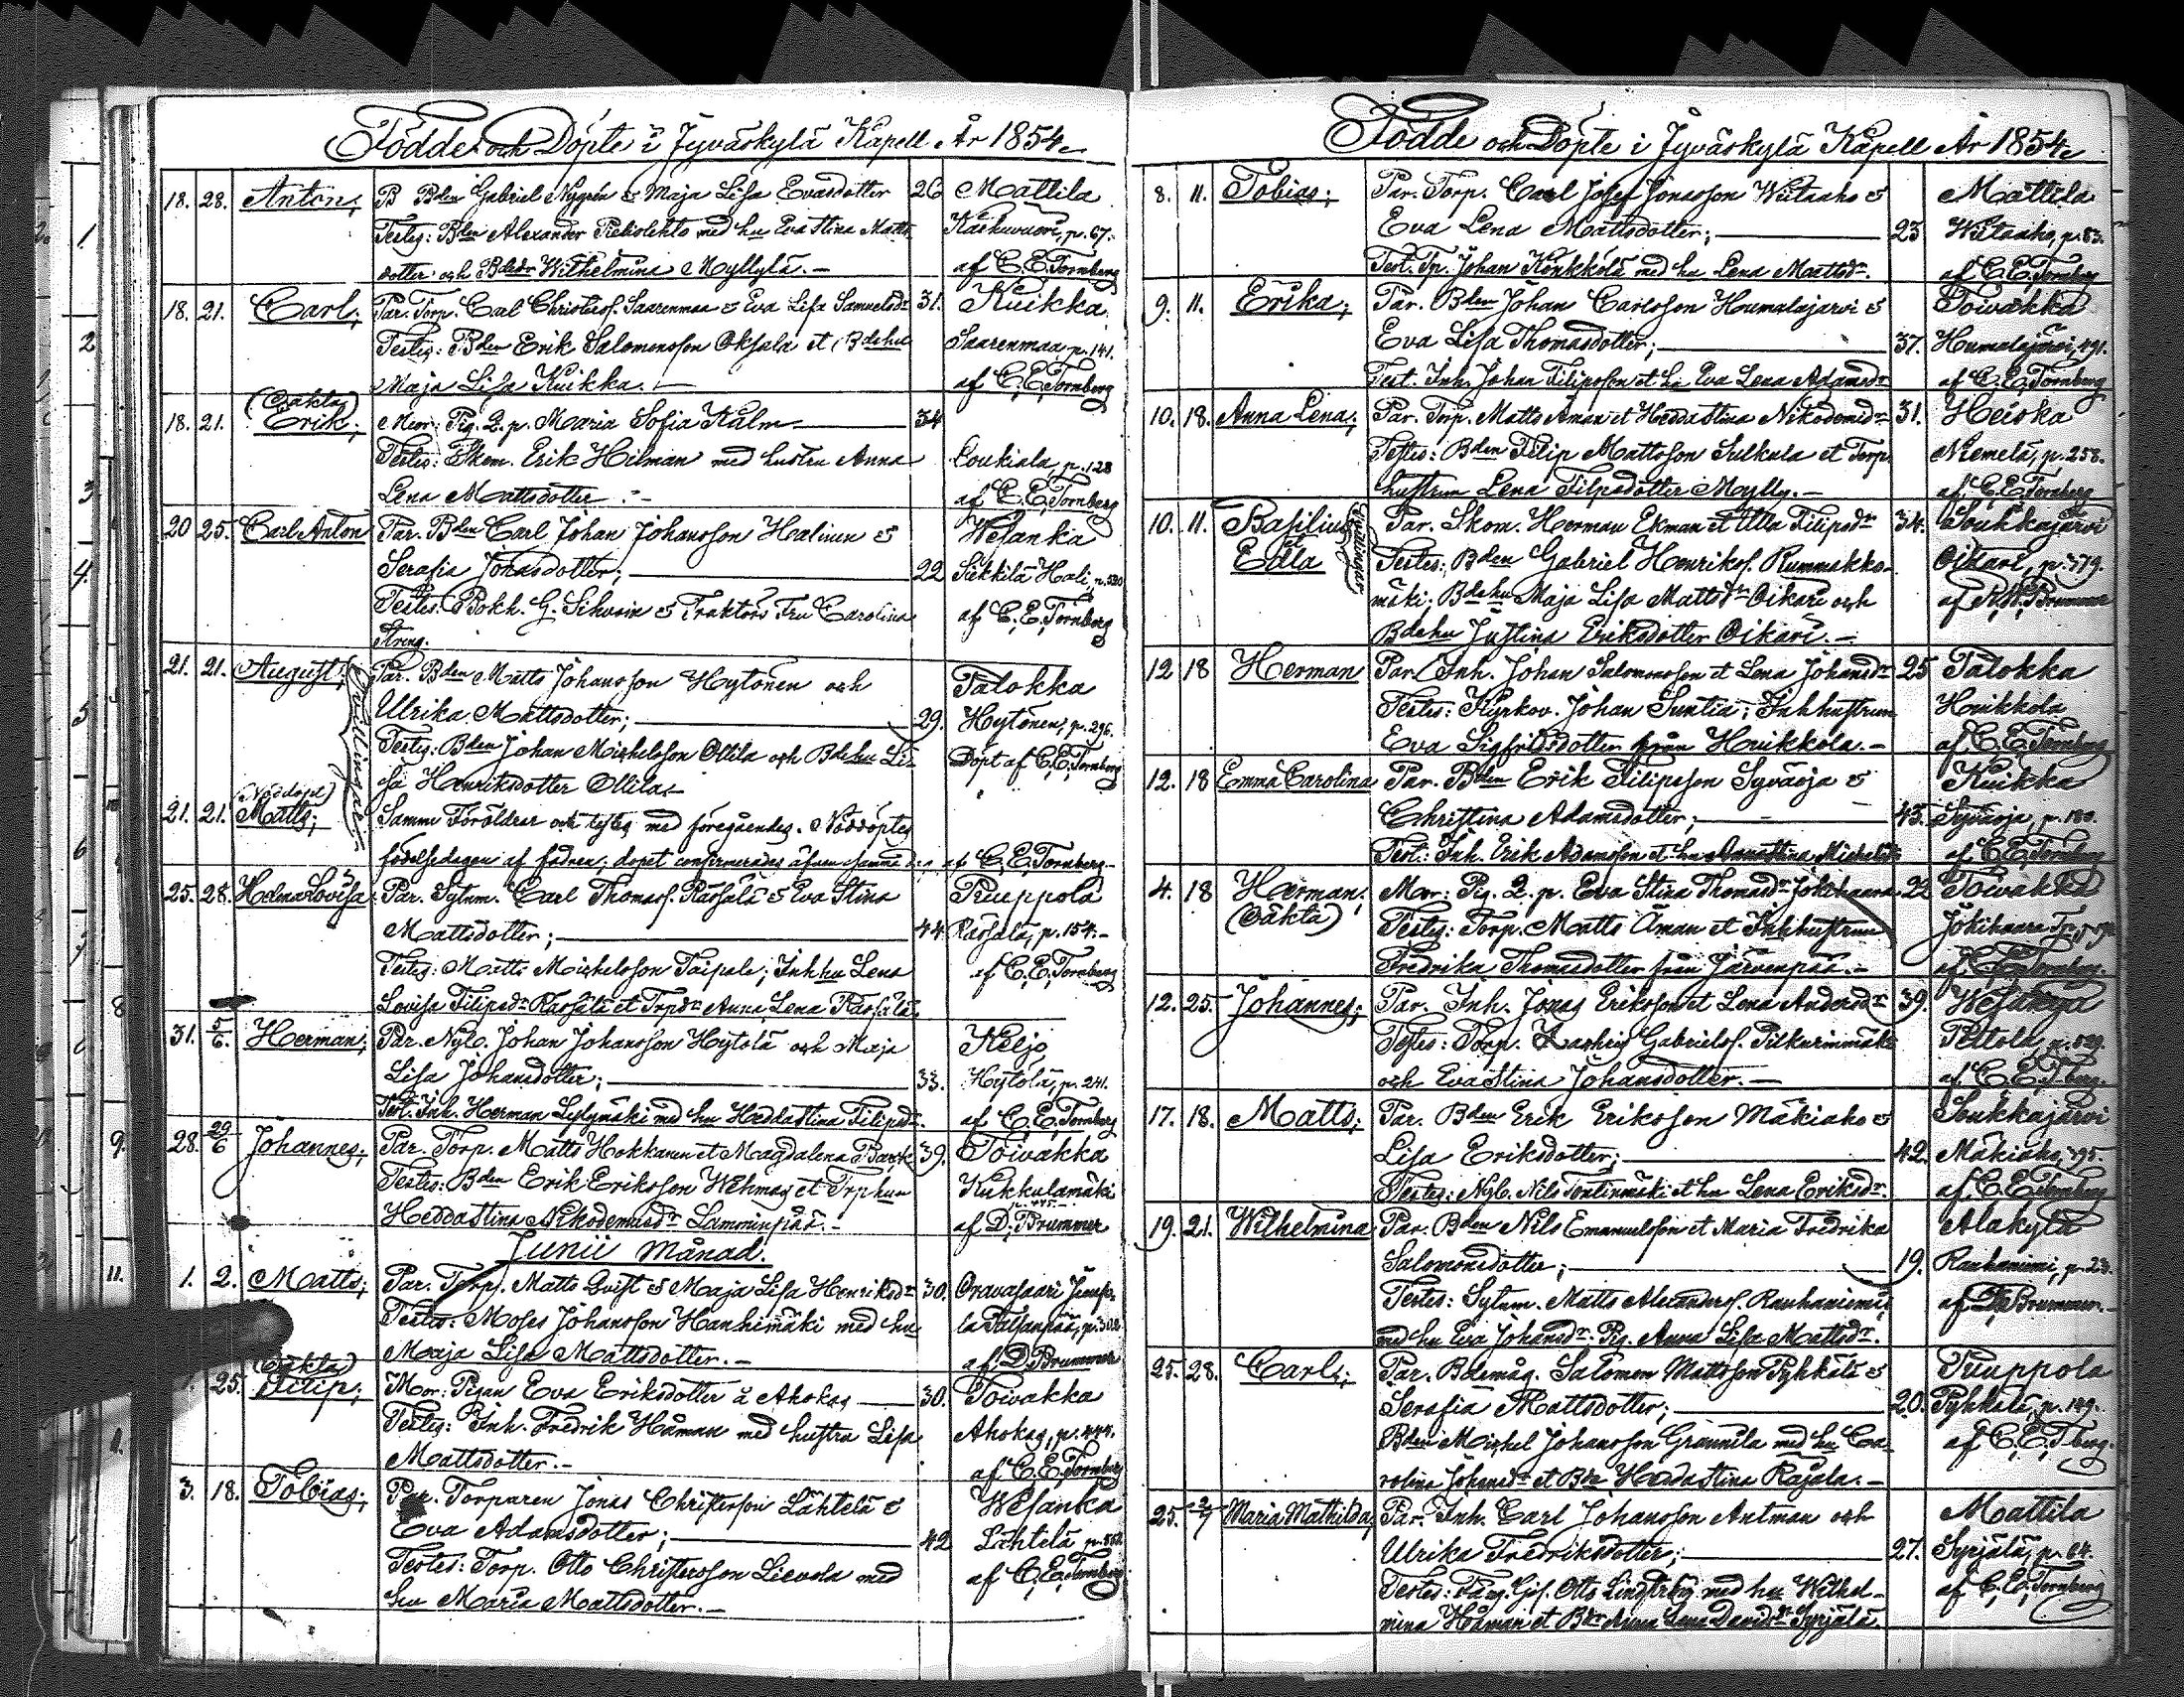 Födde och Döpte i Jyväskylä Kapell År 1854.
18. 28. Anton; B Bden Gabriel Nygrén & Maja Lisa Evasdotter 26 Mattila
Testes: Bden Alexander med hu Eva Stina Matts p. 67.
dotter och Bdedr Wilhelmina Myllylä. — af C. E. Tornberg
18. 21. Carl; Par. Torp. Carl Christersf. Saarenmaa & Eva Lisa Samuelsdr 31. Kuikka
Testes: Bden Erik Salomonsson Oksala et Bdehu Saarenmaa, p. 141.
Maja Lisa Kuikka. — af C. E. Tornberg
(Oäkta)
18. 21. Erik; Mor: Pig. Q. p. Maria Sofia Kalm 34
Testes: Skom. Erik Hilman med hustru Anna Loukiala, p. 128
Lena Mattsdotter. — af C. E. Tornberg
20 25. Carl Anton Par. Bden Carl Johan Johansson Halinen & Wesanka
Serafia Jonasdotter; 22 Siekkilä Hali, p. 530
Testes: Bokh. G. Sihvoin & Traktörs Fru Carolina af C. E. Tornberg
Streng.
21. 21. August; Tvillingar Par. Bden Matts Johansson Hytönen och Palokka
Ulrika Mattsdotter; 29. Hytönen, p. 296.
Testes: Bden Johan Michelsson Ollila och Bdehu Li- Döpt af C. E. Tornberg
sa Henriksdotter Ollila
(Nöddöpt)
21. 21. Matts; Samma Föräldrar och testes med föregående. Nöddöptes
födelsedagen af fadren; dopet confirmerades äfven samma d: af C. E. Tornberg
25. 28. Helena Lovisa Par. Sytnm. Carl Thomasf. Rassala & Eva Stina Puuppola
Mattsdotter; 44 Rassala, p. 154. —
Testes: Matts Michelsson Taipale; Inh hu Lena af C. E. Tornberg
Lovisa Filipsdr Rassala et Trpdr Anna Lena Rassala
31. 5/6. Herman; Par. Nyb. Johan Johansson Hytölä och Maja Keljo
Lisa Johansdotter; 33. Hytölä, p. 241.
Test. Inh. Herman Lylymäki med hu Hedda Stina Filipsdr. af C. E. Tornberg
28. 29/6 Johannes; Par. Torp. Matts Hokkanen et Magdalena 39. Toivakka
Testes: Bden Erik Eriksson Wehmas et Trphun Kukkulamäki
Hedda Stina Nikodemusdr Lamminpää. — af D. Brummer
Junii Månad.
1. 2. Matts; Par. Torp. Matts Qvist & Maja Lisa Henriksdr 30. Oravasaari
Testes: Moses Johansson Hanhimäki med hu
Maja Lisa Mattsdotter. — af D. Brummer
(Oäkta)
25. Filip; Mor: Pigan Eva Eriksdotter å Ahokas 30. Toivakka
Testes: Inh. Fredrik Håman med hustru Lisa Ahokas, p. 444.
Mattsdotter. — af C. E. Tornberg
3. 18. Tobias; Par. Torparen Jonas Christersson Lähtelä & Wesanka
Eva Adamsdotter; 42 Lähtelä
Testes: Torp. Otto Christersson Lievola med af C. E. Tornberg
hu Maria Mattsdotter. —
Födde och Döpte i Jyväskylä Kapell År 1854.
8. 11. Tobias; Par. Torp. Carl Josef Jonasson Wiitaaho & Mattila
Eva Lena Mattsdotter; 23 Wiitaaho, p. 83.
Test. Tp. Johan Konkkola med hu Lena Mattsdr. af C. E. Tornberg
9. 11. Erika; Par. Bden Johan Carlsson Humalajärvi & Toivakka
Eva Lisa Thomasdotter; 37. Humalajärvi, 491.
Test. Inh. Johan Filipsson et hu Eva Lena Adamsdr af C. E. Tornberg
10. 18. Anna Lena; Par. Torp. Matts Åman et Hedda Stina Nikodemusdr 31. Heiska
Testes: Bden Filip Mattsson Sulkula et Torp. Niemelä, p. 258.
hustrun Lena Filpsdotter Mylly. — af C. E. Tornberg
10. 11. Basilius et Tvillingar Par. Skom. Herman Ekman et Ulla Filipsdr 34. Soukkajärvi
Edla Testes: Bden Gabriel Henriksf. Rummakko- Oikari, p. 379.
mäki; Bdehu Maja Lisa Mattsdr Oikari och af Brummer
Bdehu Justina Eriksdotter Oikari. —
12 18 Herman Par. Inh. Johan Salomonsson et Lena Johansdr 25 Palokka
Testes: Kyrkov. Johan Suntia; Inhhustrun Huikkola
Eva Sigfridsdotter från Huikkola. — af C. E. Tornberg
12. 18 Emma Carolina Par. Bden Erik Filipsson Syväoja & Kuikka
Christina Adamsdotter; 43. Syväoja, p. 180.
Test: Inh. Erik Adamsson et hu Anna Stina Michelsdr af C. E. Tornberg
4. 18 Herman; Mor: Pig. Q. p. Eva Stina Thomasdr Jokihaara 22 Toivakka
(Oäkta) Testes: Torp. Matts Åman et Inhhustrun Jokihaara
Fredrika Thomasdotter från Järvenpää. — af C. E. Tornberg.
12. 25. Johannes; Par. Inh. Jonas Eriksson et Lena Andersdr 39. Wesanga
Testes: Torp. Zachris Gabrielsf. Pilkurinmäki Pellola, p. 529.
och Eva Stina Johansdotter. — af C. E. Tberg.
17. 18. Matts; Par. Bden Erik Eriksson Mäkiaho & Soukkajärvi
Lisa Eriksdotter; 42. Mäkiaho, 395.
Testes: Nyb. Nils Tontinmäki et hu Lena Eriksdr. af C. E. Tornberg
19. 21. Wilhelmina Par. Bden Nils Emanuelsson et Maria Fredrika Alakylä
Salomonsdotter; 19. Rauhaniemi, p. 23.
Testes: Sytnm. Matts Alexandersf. Rauhaniemi af D. Brummer. —
med hu Eva Johansdr. Pig. Anna Lisa Mattsdr.
25. 28. Carl; Par. Bdemåg. Salomon Mattsson Pyhkälä & Puuppola
Serafia Mattsdotter; 20. Pyhkälä, p. 149.
Bden Michel Johansson Grannila med hu Ca- af C. E. Tberg.
rolina Johansdr et Bdr Hedda Stina Rajala. —
25. 2/7 Maria Mathilda; Par. Inh. Carl Johansson Antman och Mattila
Ulrika Fredriksdotter; 27. Syrjälä, p. 64.
Testes: Färg. Gesf. Otto Lindberg med hu Wilhel- af C. E. Tornberg
mina Håman et Bdr Anna Lena Davidsdr Syrjälä.